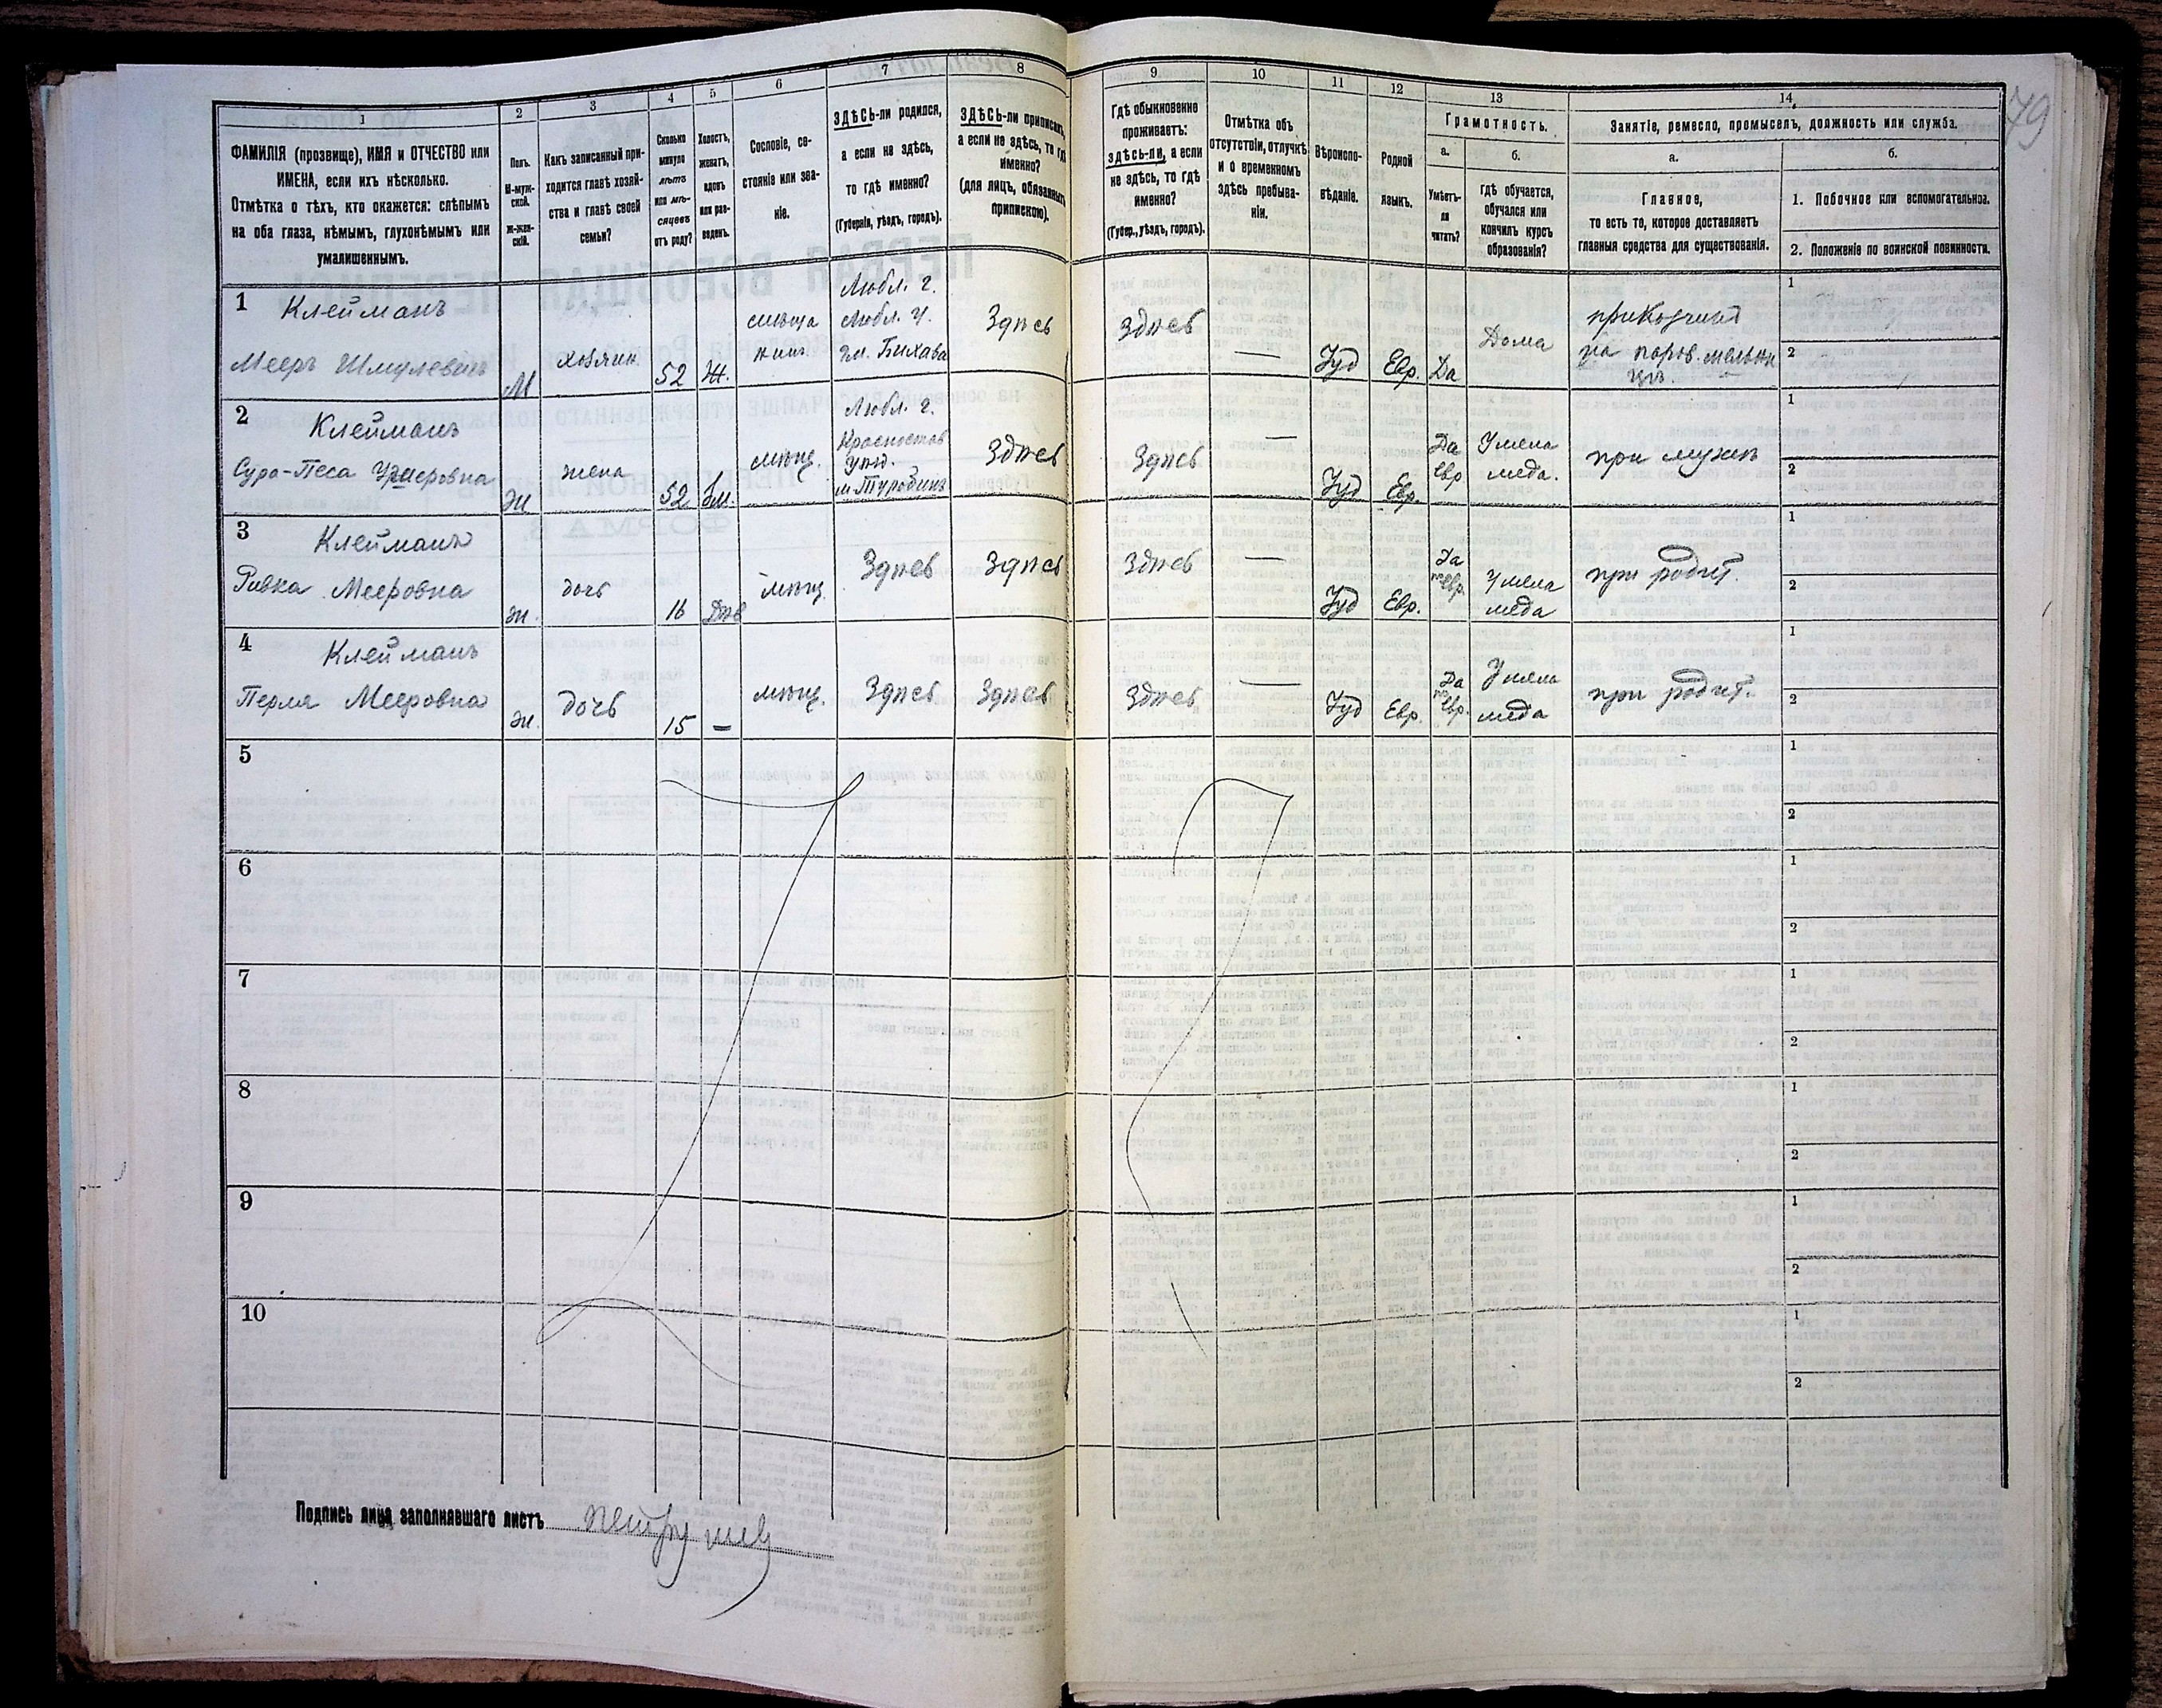 79
1
2
3
4
5
6
7
8
9
10
11
12
13
14
ФАМИЛІЯ (прозвище), ИМЯ и ОТЧЕСТВО или
ИМЕНА, если ихъ нѣсколько.
Отмѣтка о тѣхъ, кто окажется: слѣпымъ
на оба глаза, нѣмымъ, глухонѣмымъ или
умалишеннымъ.
Полъ.
М-муж-
ской.
Ж-жен-
скій.
Какъ записанный при-
ходится главѣ хозяй-
ства и главѣ своей
семьи?
Сколько
минуло
лѣтъ
или мѣ-
сяцевъ
отъ роду?
Холостъ,
женатъ,
вдовъ
или раз-
веденъ.
Сословіе, со-
стояніе или зва-
ніе.
ЗДѢСЬ-ли родился,
а если не здѣсь,
то гдѣ именно?
(Губернія, уѣздъ, городъ).
ЗДѢСЬ-ли приписанъ,
а если не здѣсь, то гдѣ
именно?
(для лицъ, обязанныхъ
припискою).
Гдѣ обыкновенно
проживаетъ:
здѣсь-ли, а если
не здѣсь, то гдѣ
именно?
(Губер., уѣздъ, городъ).
Отмѣтка объ
отсутствіи, отлучкѣ
и о временномъ
здѣсь пребыва-
ніи.
Вѣроиспо-
вѣданіе.
Родной
языкъ.
Грамотность.
а.
Умѣетъ-
ли
читать?
б.
гдѣ обучается,
обучался или
кончилъ курсъ
образованія?
Занятіе, ремесло, промыселъ, должность или служба.
а.
Главное,
то есть то, которое доставляетъ
главныя средства для существованія.
б.
1. Побочное или вспомогательное.
2. Положеніе по воинской повинности.
1 Клейманъ
Мееръ Шмулевичъ
М
хозяин
52
Ж.
Любл. г.
Любл. у.
Здѣсь
Здѣсь
—
Іуд
Евр.
Да
Дома
1
2
2 Клейманъ
Сура-Песа
ж
жена
52
Зм.
мѣщ.
Любл. г.
Красностав
уѣзд.
м. Туробинъ
Здѣсь
Здѣсь
—
Іуд
Евр.
Да
Евр
У мела
меда.
при мужѣ
1
2
3 Клейманъ
Ривка Мееровна
ж.
дочь
16
Дѣв
мѣщ.
Здѣсь
Здѣсь
Здѣсь
—
Іуд
Евр.
Да
по Евр.
У мела
меда
при родит.
1
2
4 Клейманъ
Перля Мееровна
ж.
дочь
15
—
мѣщ.
Здѣсь
Здѣсь
Здѣсь
—
Іуд
Евр.
Да
по Евр.
У мела
меда
при родит.
1
2
5
1
2
6
1
2
7
1
2
8
1
2
9
1
2
10
1
2
Подпись лица заполнявшаго листъ